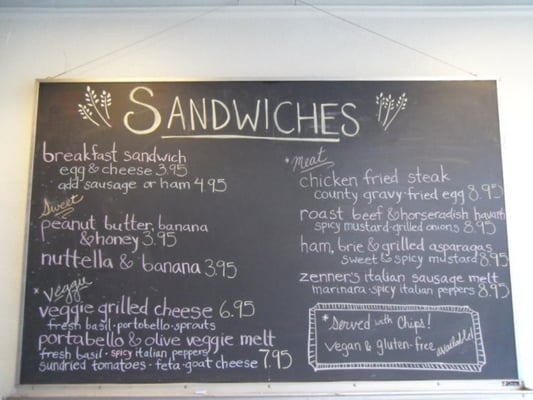 SANDWICHES
breakfast sandwich
egg & cheese 3.95
add sausage or ham 4.95
Sweet
peanut butter, banana
& honey 3.95
nuttella & banana 3.95
*Veggie
veggie grilled cheese 6.95
fresh basil · portobello · sprouts
portabello & olive veggie melt
fresh basil · spicy italian peppers
sundried tomatoes · feta · goat cheese 7.95
*Meat
chicken fried steak
county gravy · fried egg 8.95
roast beef & horseradish havarti
spicy mustard · grilled onions 8.95
ham, brie & grilled asparagus
sweet & spicy mustard 8.95
zenner's italian sausage melt
marinara · spicy italian peppers 8.95
*Served with Chips!
vegan & gluten-free available!